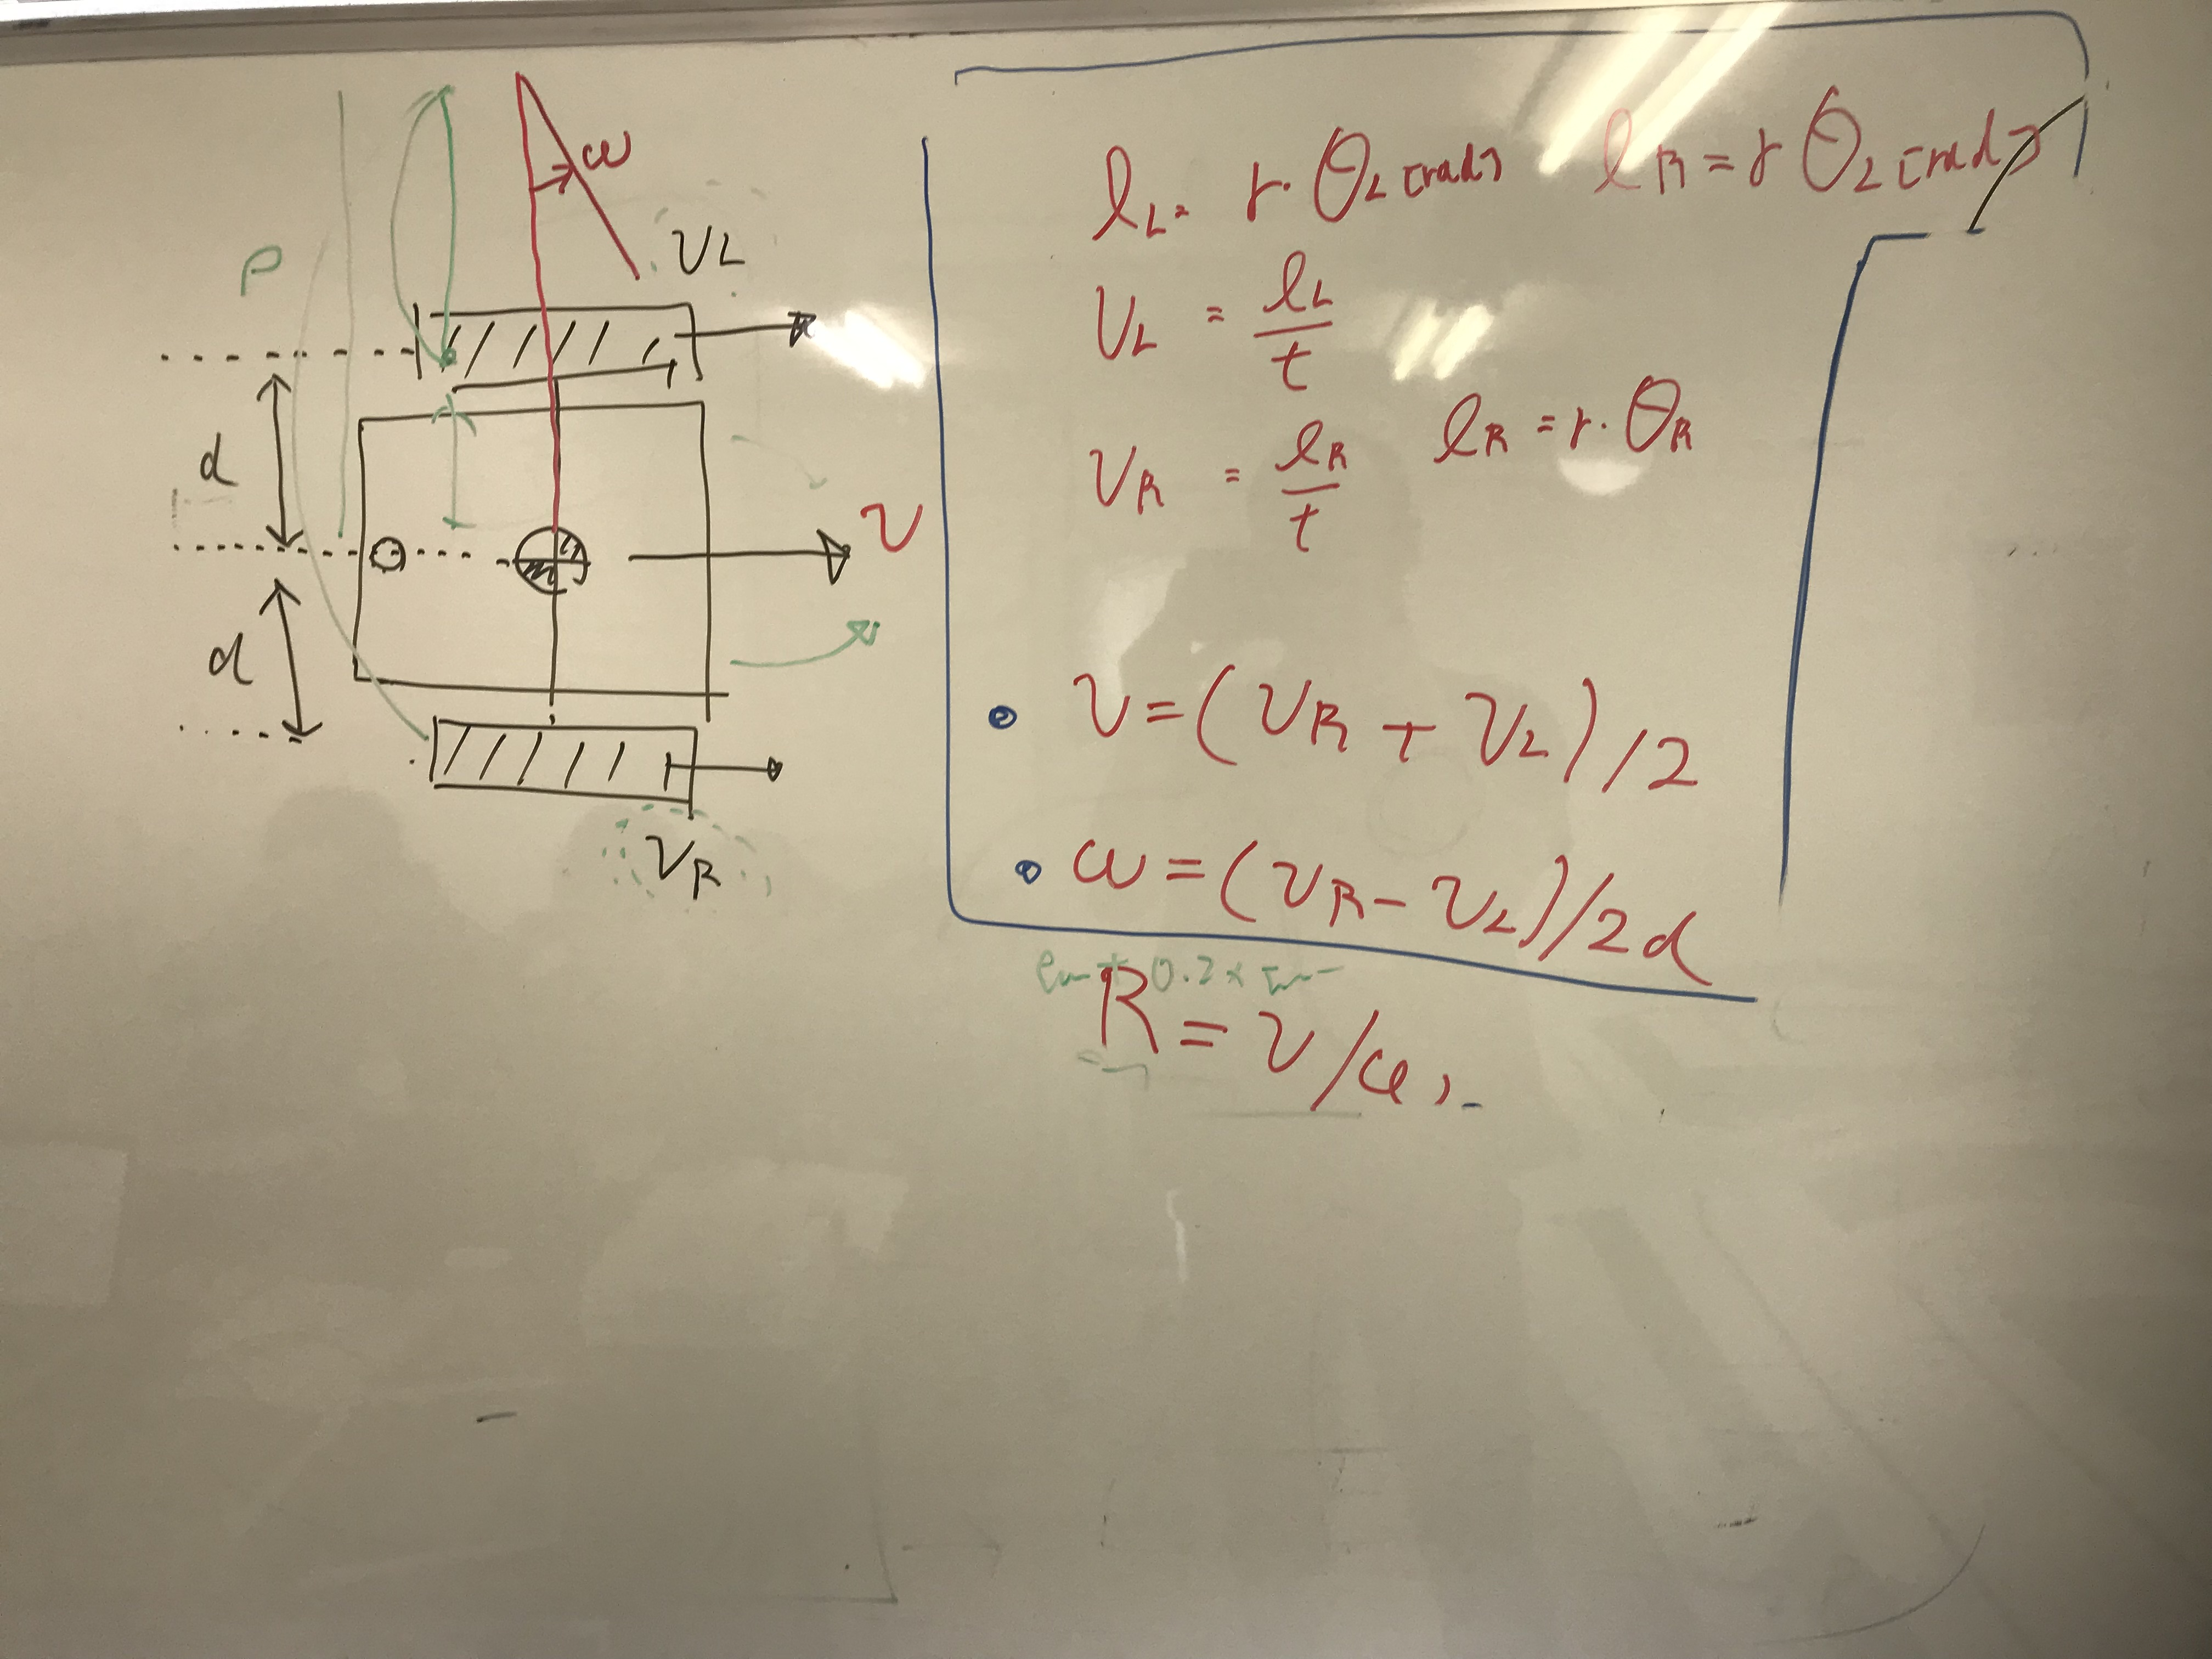 ω
VL
ρ
d
v
d
VR
lL = r・θL [rad] lR = r θL [rad]
VL = lL/t
VR = lR/t lR = r・θR
v = (VR + VL)/2
ω = (VR - VL)/2d
R = v/ω